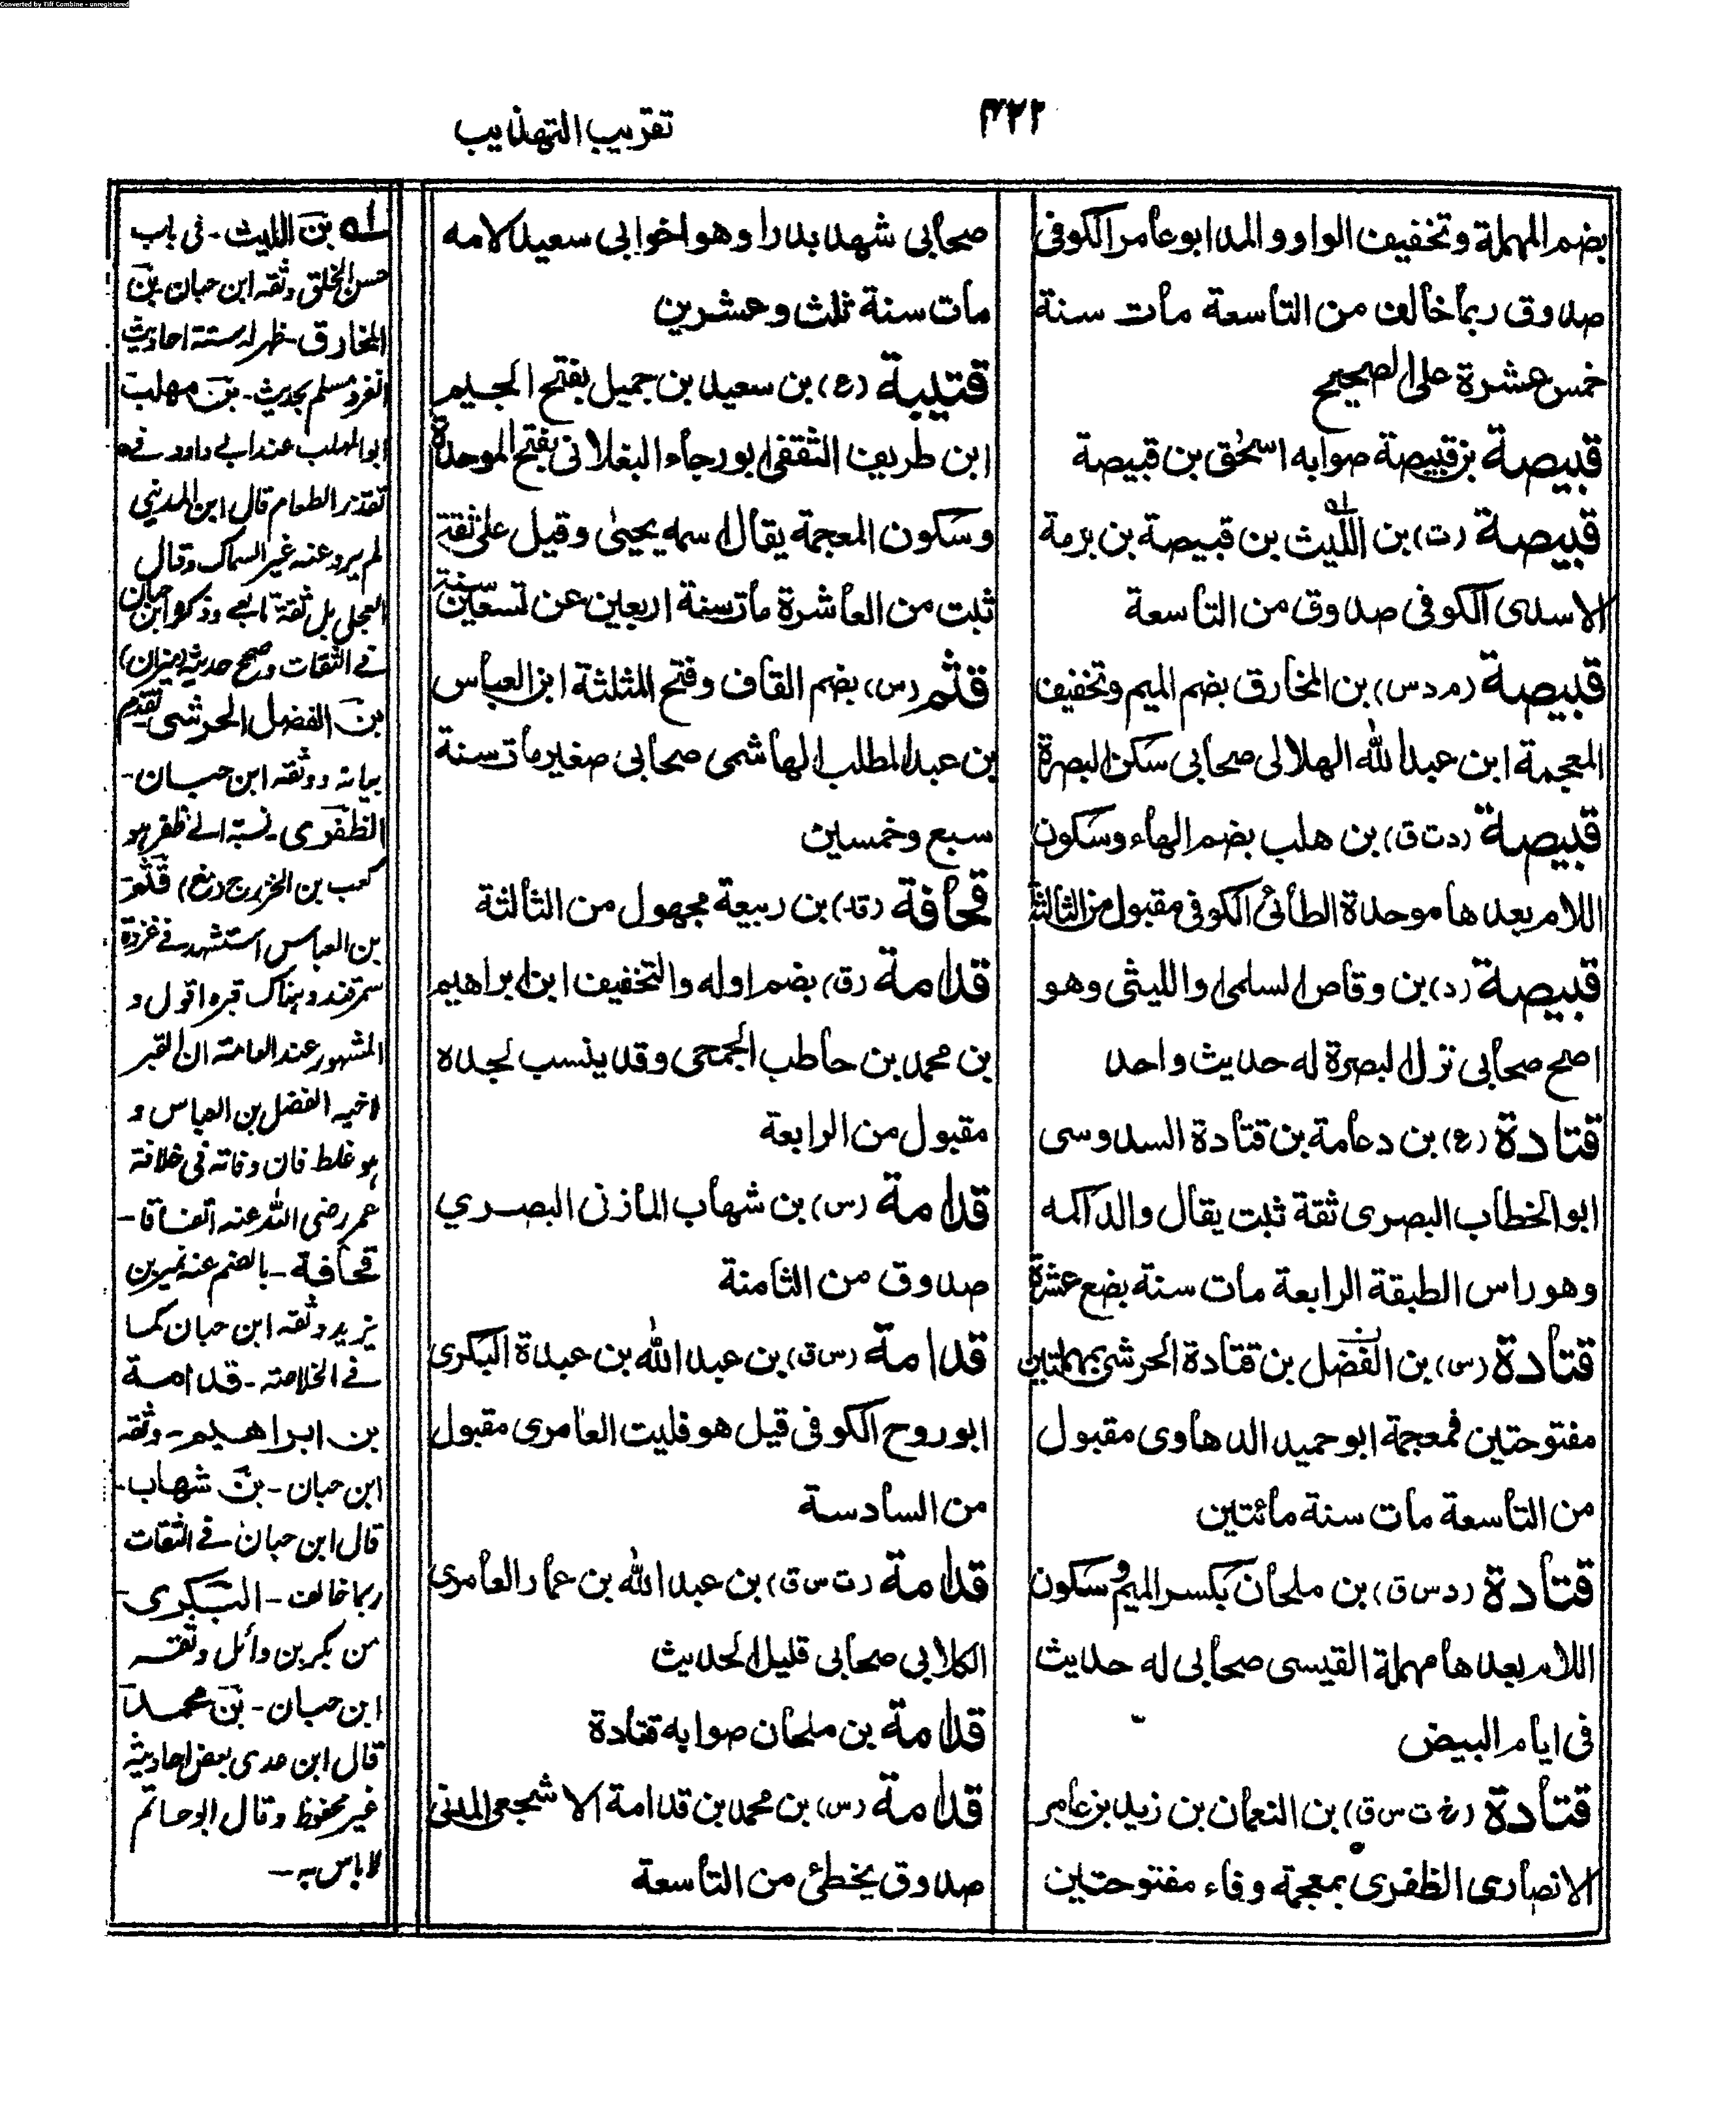 Converted by Tiff Combine - unregistered
٤٢٢
تقريب التهذيب
بضم المهملة وتخفيف الواو والمد ابو عامر الكوفى
صدوق ربما خالف من التاسعة مات سنة
خمس عشرة على الصحيح
قبيصة بن قبيصة صوابه اسحٰق بن قبيصة
قبيصة (ت) بن الليث بن قبيصة بن برمة
الاسدى الكوفى صدوق من التاسعة
قبيصة (م د س) بن المخارق بضم الميم وتخفيف
المعجمة ابن عبد الله الهلالى صحابى سكن البصرة
قبيصة (د ت ق) بن هلب بضم الهاء وسكون
اللام بعدها موحدة الطائى الكوفى مقبول من الثالثة
قبيصة (د) بن وقاص السلمى والليثى وهو
اصح صحابى نزل البصرة له حديث واحد
قتادة (ع) بن دعامة بن قتادة السدوسى
ابو الخطاب البصرى ثقة ثبت يقال والد اكمه
وهو راس الطبقة الرابعة مات سنة بضع عشرة
قتادة (س) بن الفضل بن قتادة الحرشى بمهملتين
مفتوحتين فمعجمة ابو حميد الدهاوى مقبول
من التاسعة مات سنة مائتين
قتادة (د س ق) بن ملحان بكسر الميم وسكون
اللام بعدها مهملة القيسى صحابى له حديث
فى ايام البيض
قتادة (خ ت س ق) بن النعمان بن زيد بن عامر
الانصارى الظفرى بمعجمة وفاء مفتوحتين
صحابى شهد بدرا وهو اخو ابى سعيد لامه
مات سنة ثلث وعشرين
قتيبة (ع) بن سعيد بن جميل بفتح الجيم
ابن طريف الثقفى ابو رجاء البغلانى بفتح الموحدة
وسكون المعجمة يقال اسمه يحيىٰ وقيل على ثقة
ثبت من العاشرة مات سنة اربعين عن تسعين سنة
قثم (س) بضم القاف وفتح المثلثة ابن العباس
بن عبد المطلب الهاشمى صحابى صغير مات سنة
سبع وخمسين
قحافة (قد) بن ربيعة مجهول من الثالثة
قدامة (ق) بضم اوله والتخفيف ابن ابراهيم
بن محمد بن حاطب الجمحى وقد ينسب لجده
مقبول من الرابعة
قدامة (س) بن شهاب المازنى البصري
صدوق من الثامنة
قدامة (س ق) بن عبد الله بن عبدة البكرى
ابو روح الكوفى قيل هو فليت العامرى مقبول
من السادسة
قدامة (ت س ق) بن عبد الله بن عمار العامرى
الكلابى صحابى قليل الحديث
قدامة بن ملحان صوابه قتادة
قدامة (س) بن محمد بن قدامة الاشجعى المدنى
صدوق يخطئ من التاسعة
له بن الليث - فى باب
حسن الخلق وثقه ابن حبان - بن
المخارق - ظهر له ستة احاديث
انفرد مسلم بحديث - بن مهلب
ابو المهلب عند ابى داود فى
تقذر الطعام قال ابن المدينى
لم يرو عنه غير السماك وقال
العجلى بل ثقة تابعى وذكره ابن حبان
فى الثقات وصحح حديثه (ميزان)
بن الفضل الحرشى تقدم
بيانه ووثقه ابن حبان -
الظفرى - نسبة الى ظفر هو
كعب بن الخزرج (مغ) قثم
بن العباس استشهد فى غزوة
سمرقند وهناك قبره اقول و
المشهور عند العامة ان القبر
لاخيه الفضل بن العباس و
هو غلط فان وفاته فى خلافة
عمر رضى الله عنه اتفاقا -
قحافة - بالضم عنه نمير بن
يزيد وثقه ابن حبان كما
فى الخلاصة - قدامة
بن ابراهيم - وثقه
ابن حبان - بن شهاب -
قال ابن حبان فى الثقات
ربما خالف - البكرى -
من بكر بن وائل وثقه
ابن حبان - بن محمد
قال ابن عدى بعض احاديثه
غير محفوظ وقال ابو حاتم
لا باس به -